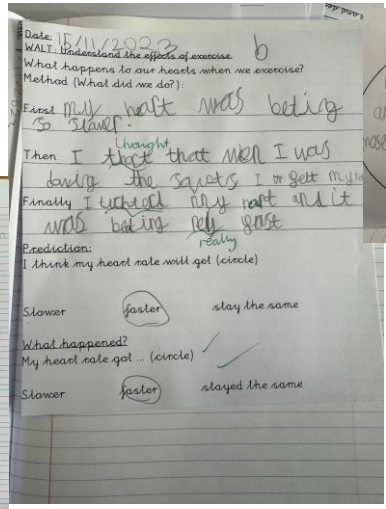 Date: 15/11/2023
WALT: Understand the effects of exercise b
What happens to our hearts when we exercise?
Method (What did we do?):
First my haft was beting
so slawer.
thought
Then I that that wen I was
the I felt
Finally I my hart and it
was beting rely fast
really
Prediction:
I think my heart rate will get (circle)
Slower faster stay the same
What happened?
My heart rate got ... (circle)
Slower faster stayed the same